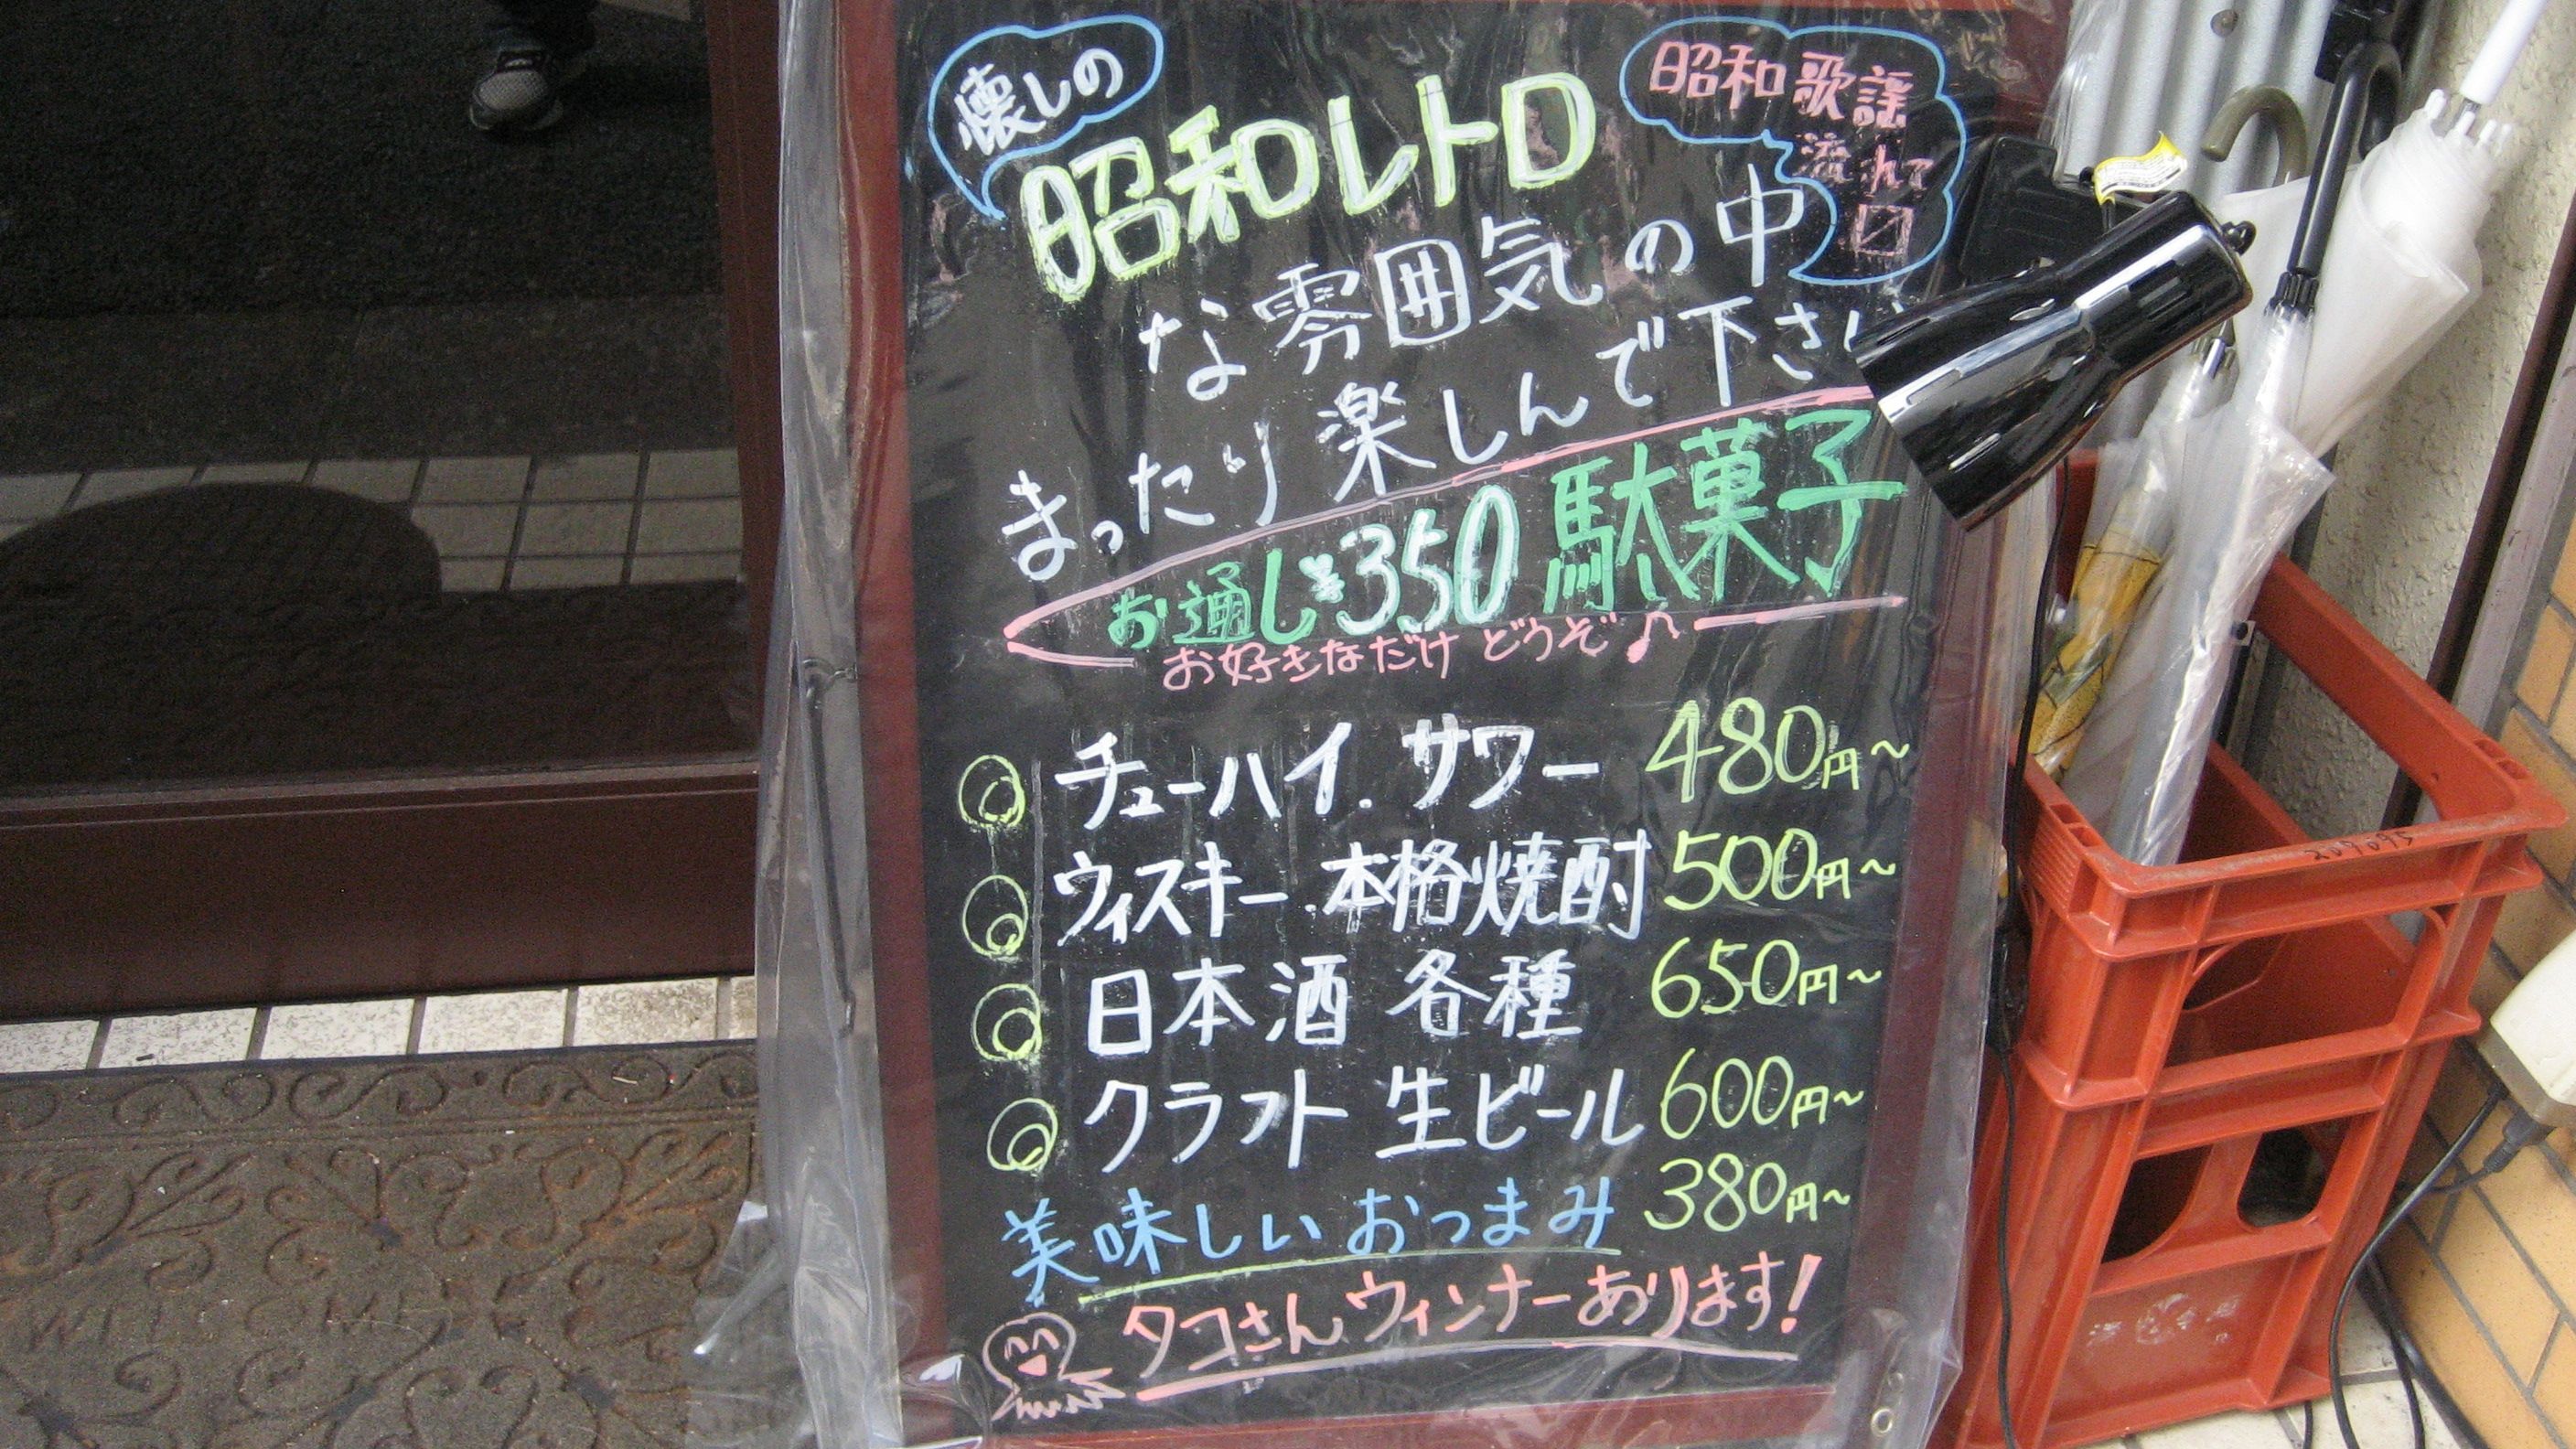 懐しの
昭和レトロ
昭和歌謡
流れて
〼
な雰囲気の中
まったり楽しんで下さい
お通し¥350 駄菓子
お好きなだけどうぞ♪
チューハイ.サワー 480円~
ウィスキー.本格焼酎 500円~
日本酒 各種 650円~
クラフト 生ビール 600円~
美味しいおつまみ 380円~
タコさんウィンナーあります!
209095
WELCOME